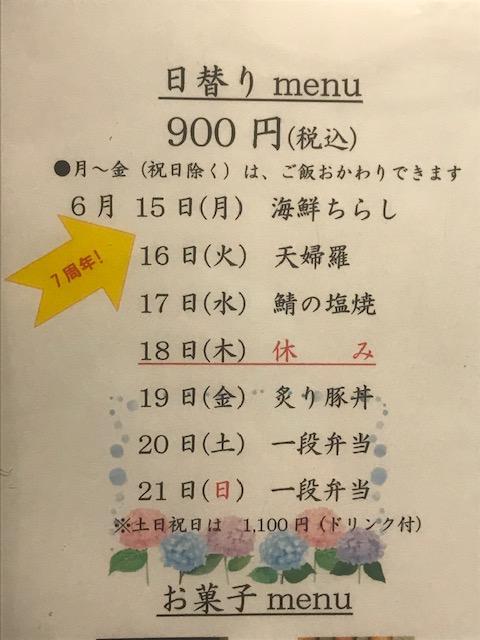 日替り menu
900 円(税込)
●月〜金（祝日除く）は、ご飯おかわりできます
6月 15日(月) 海鮮ちらし
7周年!
16日(火) 天婦羅
17日(水) 鯖の塩焼
18日(木) 休 み
19日(金) 炙り豚丼
20日(土) 一段弁当
21日(日) 一段弁当
※土日祝日は 1,100円（ドリンク付）
お菓子 menu